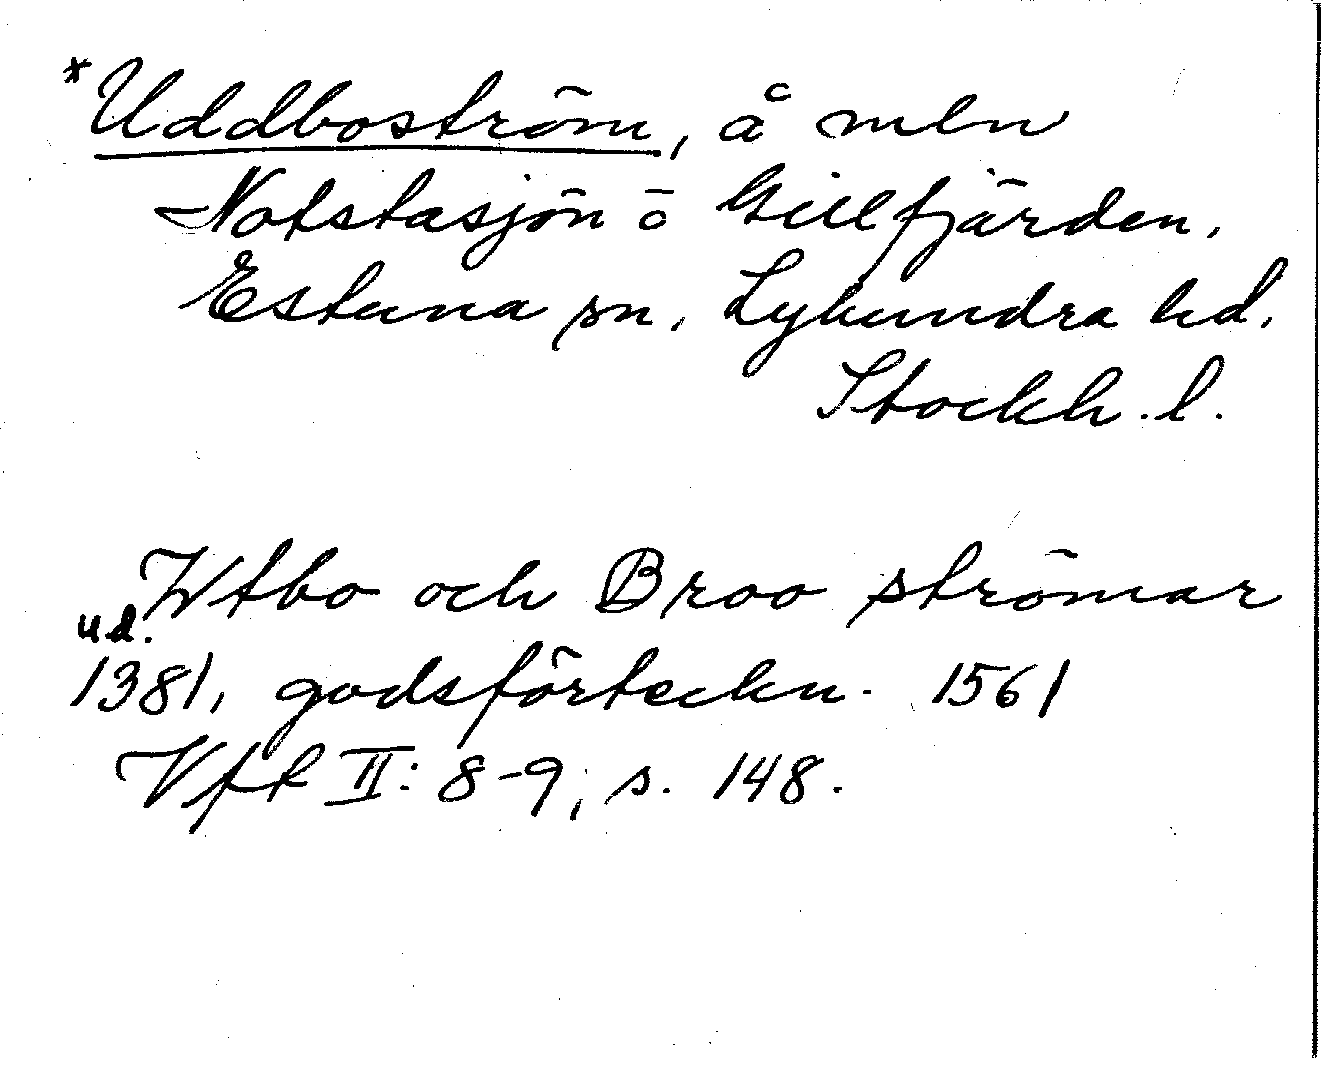 *Uddboström, å mln
Notstasjön o Gillfjärden,
Estuna sn, Lyhundra hd,
Stockh. l.
Wtbo och Broo strömar
ud.
1381, godsförteckn. 1561
Vfl II: 8-9, s. 148.